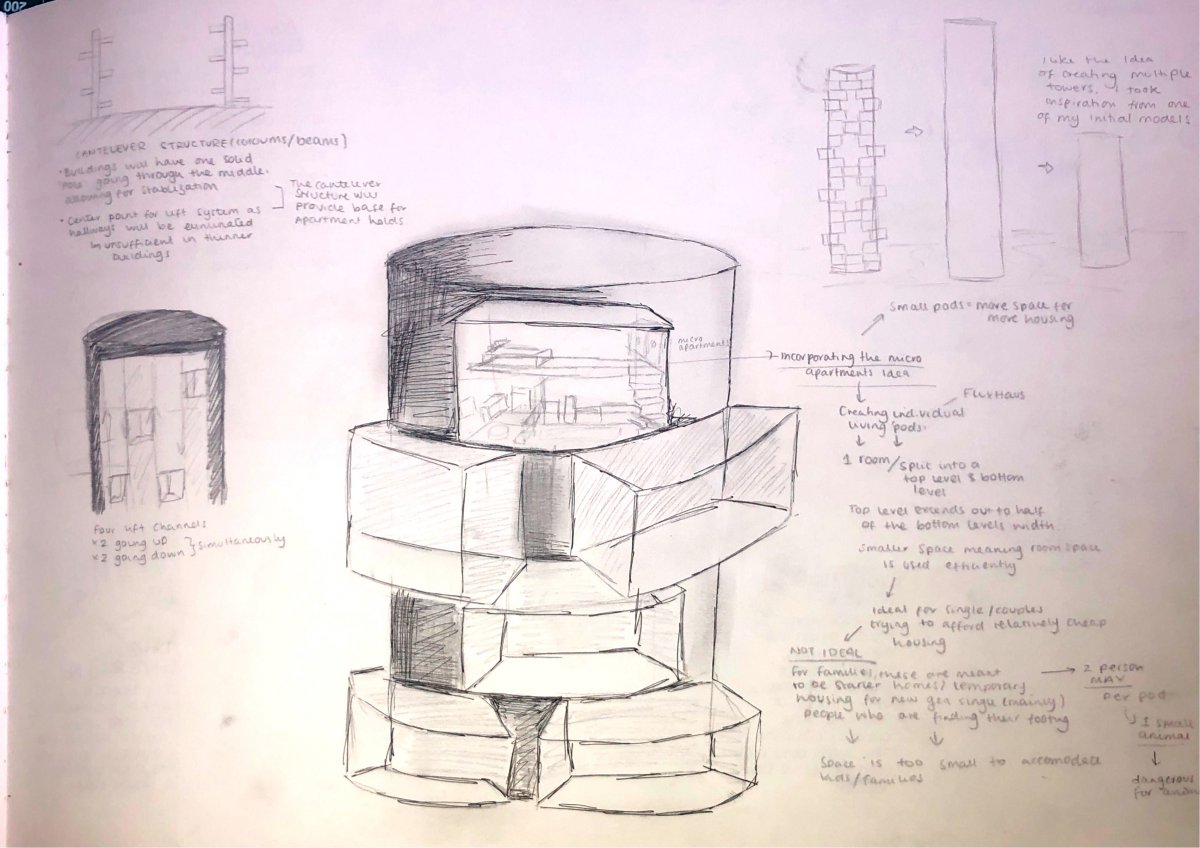 200
CANTELEVER STRUCTURE (colowms/beams)
• Buildings will have one solid
pole going through the middle.
allowing for stabilisation
• Center point for lift system as
hallways will be eliminated
in unsufficient in thinner
buildings
The cantelever
structure will
provide base for
Apartment holds
I like the idea
of creating multiple
towers, I took
inspiration from one
of my initial models
Four lift channels
x2 going up
x2 going down
simultaneously
micro
apartments
Small pods = more space for
more housing
Incorporating the micro
apartments idea
FluxHaus
Creating individual
living pods.
1 room / split into a
top level & bottom
level
Top level extends out to half
of the bottom levels width.
Smaller space meaning room space
is used efficiently
Ideal for single/couples
trying to afford relatively cheap
housing
NOT IDEAL
For families, these are meant
to be starter homes/ temporary
housing for new gen single (mainly)
people who are finding their footing
2 person
MAX
per pod
1 small
animal
dangerous
for
Space is too small to accomodate
kids/families